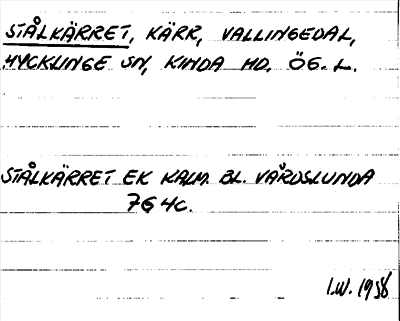 STÅLKÄRRET, KÄRR, VALLINGEDAL,
HYCKLINGE SN, KINDA HD, ÖG. L.
STÅLKÄRRET EK KALM. BL. VÅRDSLUNDA
7G 4C.
I.W. 1958